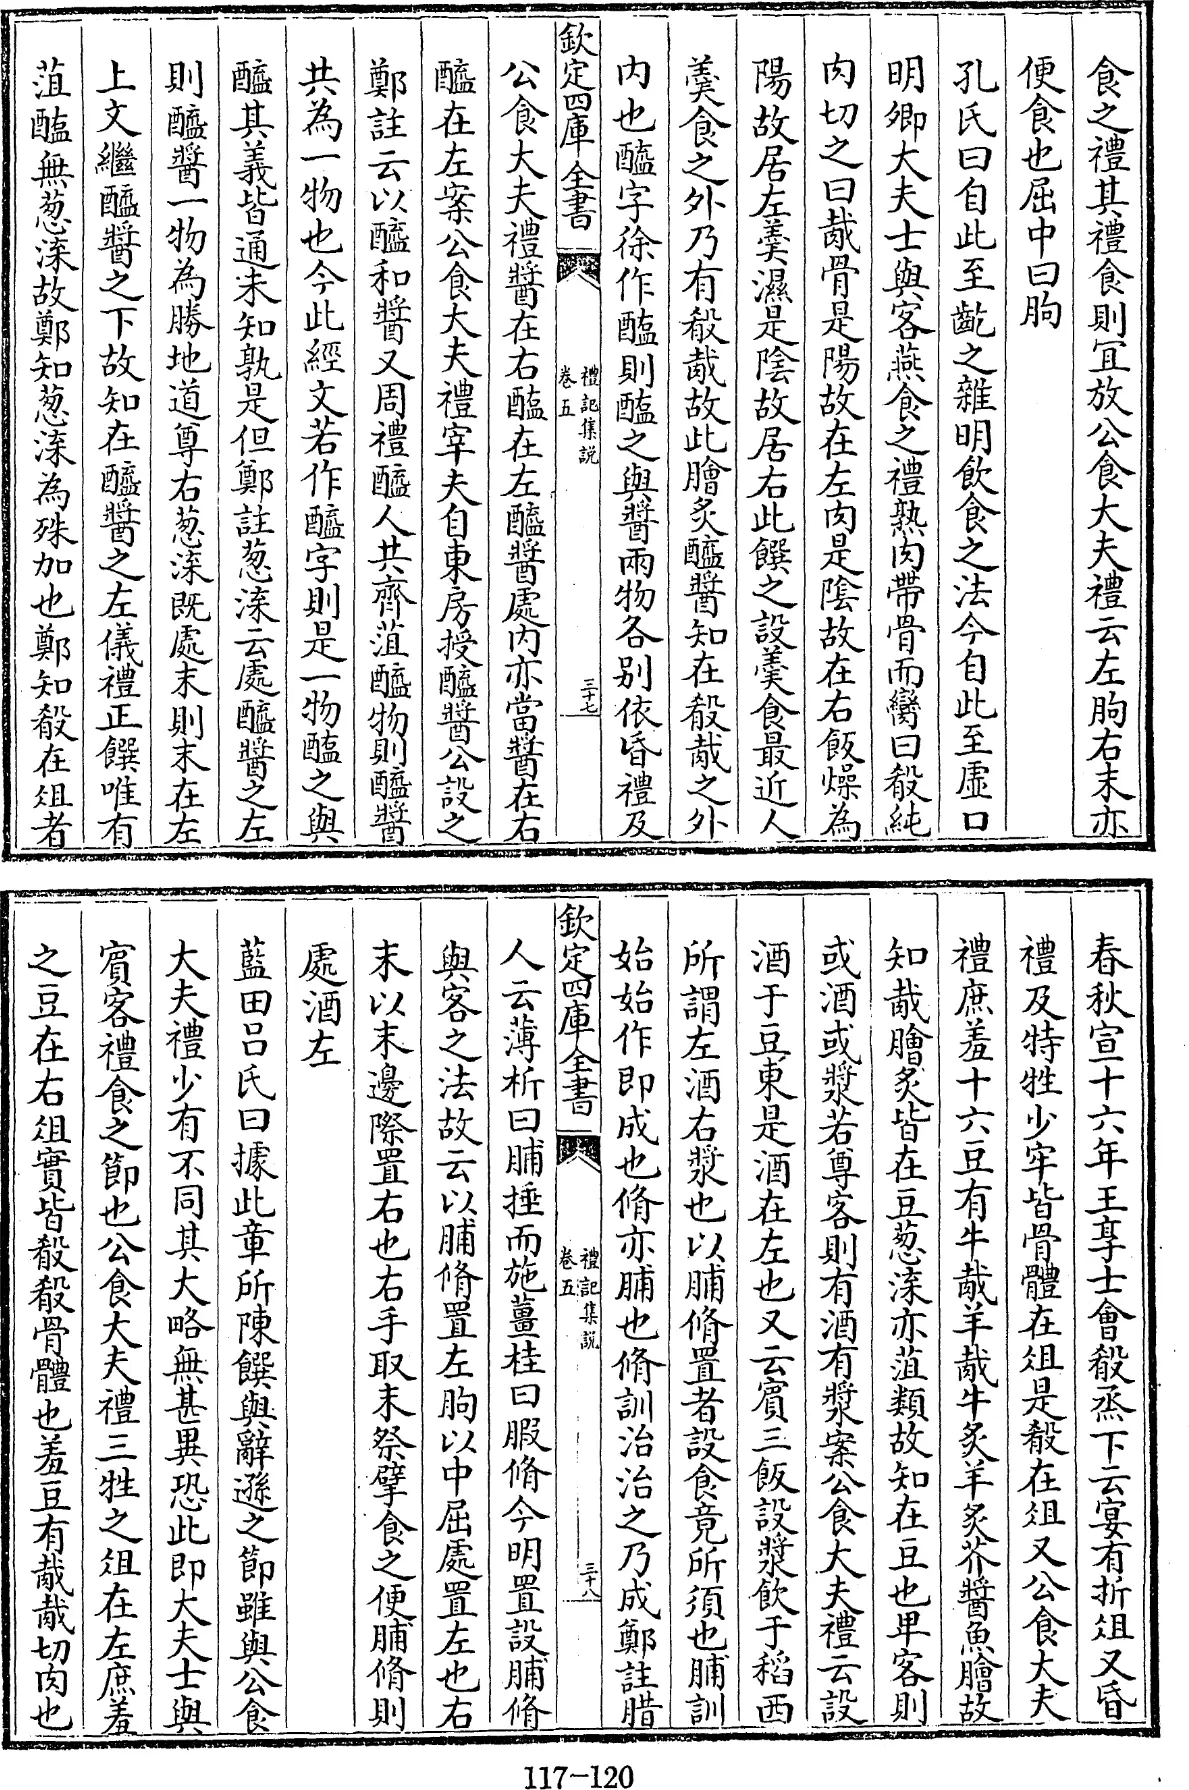 食之禮其禮食則宜放公食大夫禮云左朐右末亦
便食也屈中曰朐
孔氏曰自此至齕之雜明飲食之法今自此至虛口
明卿大夫士與客燕食之禮熟肉帶骨而臠曰殽純
肉切之曰胾骨是陽故在左肉是陰故在右飯燥為
陽故居左羮濕是陰故居右此饌之設羮食最近人
羮食之外乃有殽胾故此膾炙醯醬知在殽胾之外
内也醯字徐作醢則醢之與醬兩物各别依昏禮及
欽定四庫全書
禮記集説
卷五
三十七
公食大夫禮醬在右醢在左醯醬處内亦當醬在右
醢在左案公食大夫禮宰夫自東房授醯醬公設之
鄭註云以醯和醬又周禮醯人共齊菹醯物則醯醬
共為一物也今此經文若作醯字則是一物醢之與
醯其義皆通未知孰是但鄭註葱㳿云處醯醬之左
則醯醬一物為勝地道尊右葱㳿既處末則末在左
上文繼醯醬之下故知在醯醬之左儀禮正饌唯有
菹醢無葱㳿故鄭知葱㳿為殊加也鄭知殽在俎者
春秋宣十六年王享士會殽烝下云宴有折俎又昏
禮及特牲少牢皆骨體在俎是殽在俎又公食大夫
禮庶羞十六豆有牛胾羊胾牛炙羊炙芥醬魚膾故
知胾膾炙皆在豆葱㳿亦菹類故知在豆也卑客則
或酒或漿若尊客則有酒有漿案公食大夫禮云設
酒于豆東是酒在左也又云賓三飯設漿飲于稻西
所謂左酒右漿也以脯脩置者設食竟所須也脯訓
始始作即成也脩亦脯也脩訓治治之乃成鄭註腊
欽定四庫全書
禮記集説
卷五
三十八
人云薄析曰脯捶而施薑桂曰腶脩今明置設脯脩
與客之法故云以脯脩置左朐以中屈處置左也右
末以末邊際置右也右手取末祭擘食之便脯脩則
處酒左
藍田吕氏曰據此章所陳饌與辭遜之節雖與公食
大夫禮少有不同其大略無甚異恐此即大夫士與
賓客禮食之節也公食大夫禮三牲之俎在左庶羞
之豆在右俎實皆殽殽骨體也羞豆有胾胾切肉也
117-120